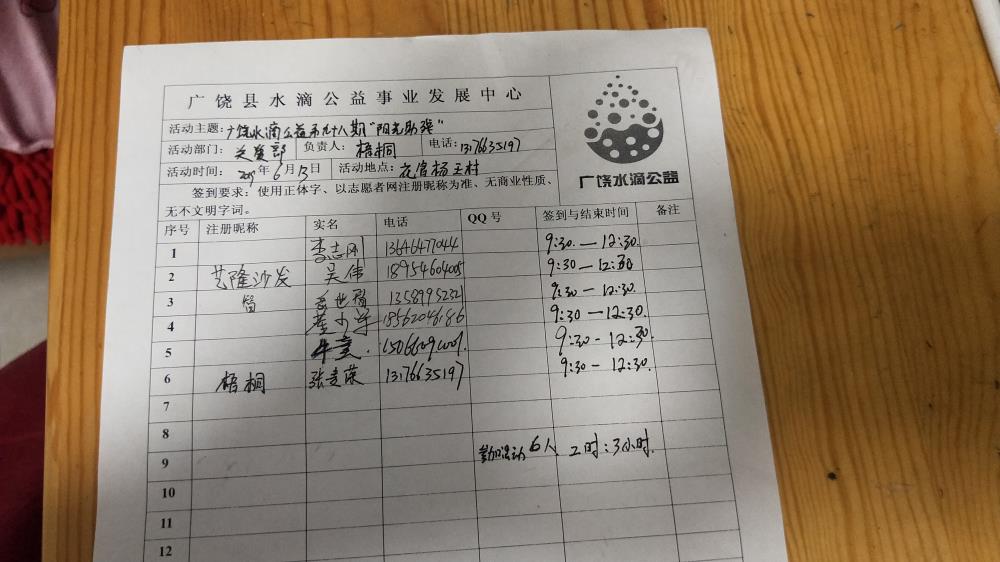 广饶县水滴公益事业发展中心
活动主题：广饶水滴公益第九十八期"阳光助残"
活动部门： 负责人：梧桐 电话：13176635197
活动时间： 年6月13日 活动地点：花官杨王村
签到要求：使用正体字、以志愿者网注册昵称为准、无商业性质、
无不文明字词。
广饶水滴公益
序号 注册昵称 实名 电话 QQ号 签到与结束时间 备注
1 李志刚 13646477044 9:30.—12:30.
2 艺隆沙发 吴伟 18954604005 9:30—12:30
3 智 世智 13589952321 9:30—12:30.
4 18562046186 9:30—12:30.
5 牛 9:30-12:30.
6 梧桐 张 荣 13176635197 9:30-12:30.
7
8
9 参加活动6人 工时：3小时.
10
11
12